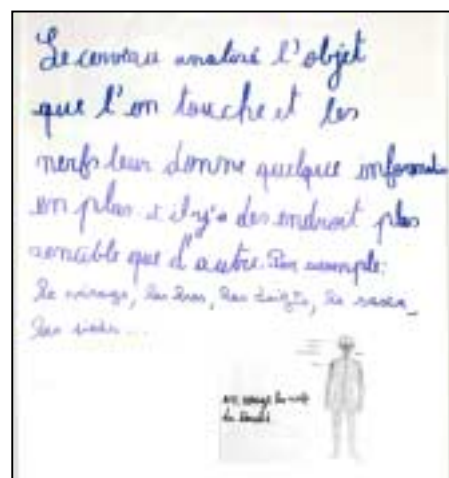 Le cerveau analisé l'objet
que l'on touche et les
nerfs leur donne quelque
en plus et il y'a des endroit plus
sencible que d'autre. Par exemple:
le visage, les bras, les doigts, le
les